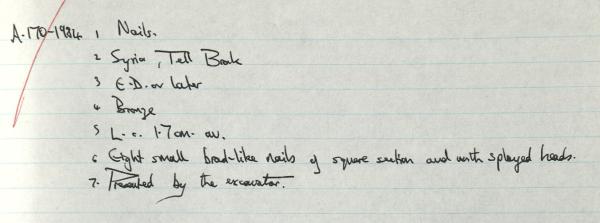 A.170-1984 1 Nails.
2 Syria, Tell Brak
3 E.D. or later
4 Bronze
5 L. c. 1.7 cm. av.
6 Eight small brad-like nails of square section and with splayed heads.
7. Presented by the excavator.